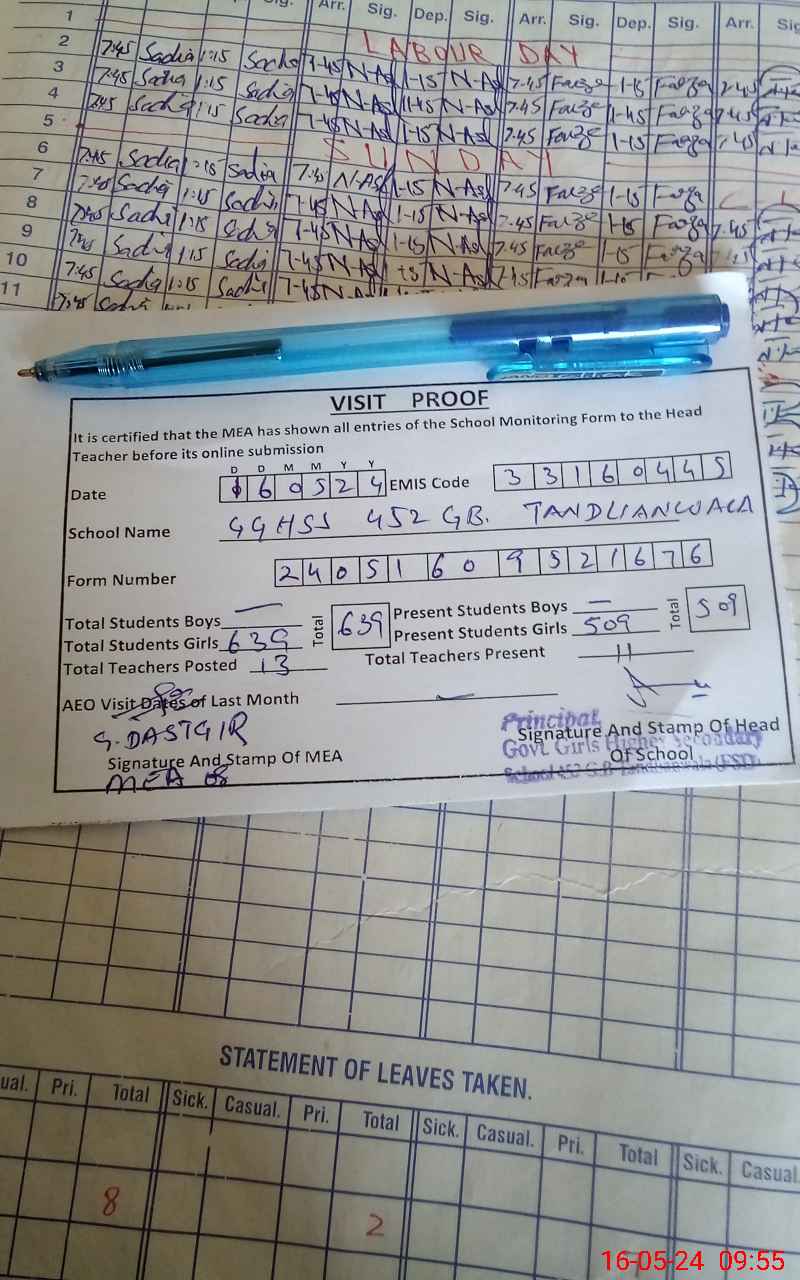 Sig. Arr. Sig. Dep. Sig. Arr. Sig. Dep. Sig. Arr.
1 LABOUR DAY
2 7:45 Sadia 1:15 Sadia 7-45 N-As 1-15 N-As 7.45 1-15
3 7:45 Sadia 1:15 Sadia 7-45 N-As 7.45 1-45
4 7:45 Sadia 1:15 Sadia 7-45 N-As 1-15 N-As 7.45 1-15
5 SUNDAY
6 7:45 Sadia 1:15 Sadia 7:45 N-As 1-15 N-As 7.45 1-15
7 7:45 Sadia 1:15 Sadia 7-45 N-As 1-15 N-As 7.45 1-15
8 7:45 Sadia 1:15 Sadia 7-45 N-As 1-15 N-As 7.45 1-15
9 7:45 Sadia 1:15 Sadia 7-45 N-As N-As
10 7:45 Sadia 1:15 Sadia 7-45 N-As
11 7:45
VISIT PROOF
It is certified that the MEA has shown all entries of the School Monitoring Form to the Head
Teacher before its online submission
D D M M Y Y
Date 1 6 0 5 2 4 EMIS Code 3 3 1 6 0 4 4 5
School Name GGHSS 452 GB. TANDLIANWALA
Form Number 2 4 0 5 1 6 0 9 5 2 1 6 7 6
Total Students Boys — Total 639 Present Students Boys — Total 509
Total Students Girls 639 Present Students Girls 509
Total Teachers Posted 13 Total Teachers Present 11
AEO Visit Dates of Last Month —
G. DASTGIR
Principal
Signature And Stamp Of Head
Govt. Girls Higher Secondary
Signature And Stamp Of MEA Of School
MEA 08
School 452 G.B Tandlianwala (FSD)
STATEMENT OF LEAVES TAKEN.
ual. Pri. Total Sick. Casual. Pri. Total Sick. Casual. Pri. Total Sick. Casual.
8 2
16-05-24 09:55